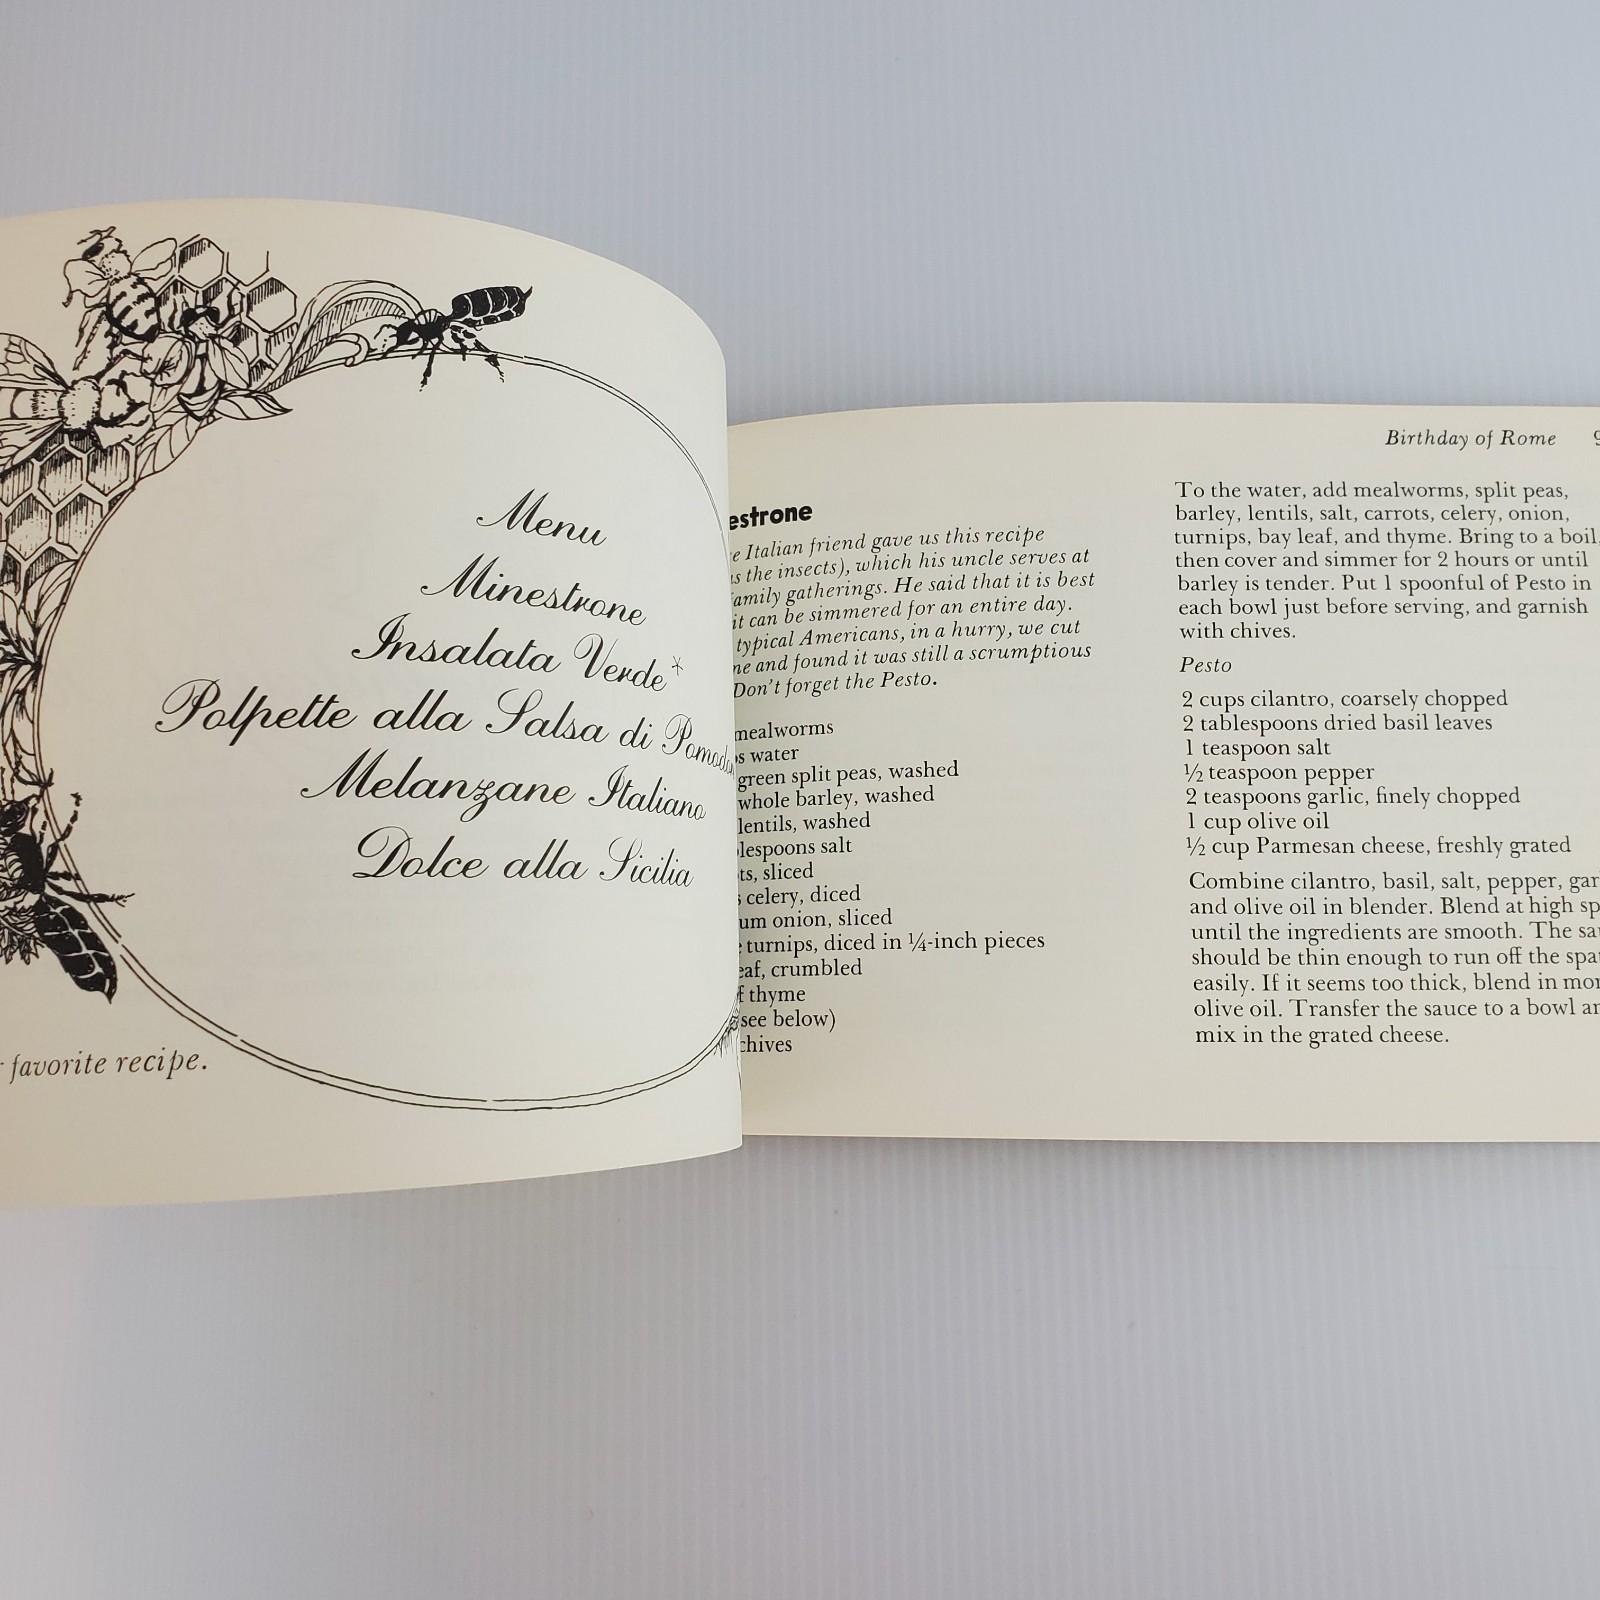 Menu
Minestrone
Insalata Verde*
Polpette alla Salsa di
Melanzane Italiano
Dolce alla Sicilia
favorite recipe.
Birthday of Rome
Italian friend gave us this recipe
the insects), which his uncle serves at
gatherings. He said that it is best
it can be simmered for an entire day.
typical Americans, in a hurry, we cut
and found it was still a scrumptious
Don't forget the Pesto.
mealworms
water
green split peas, washed
whole barley, washed
lentils, washed
salt
sliced
celery, diced
onion, sliced
turnips, diced in ¼-inch pieces
crumbled
thyme
see below)
chives
To the water, add mealworms, split peas,
barley, lentils, salt, carrots, celery, onion,
turnips, bay leaf, and thyme. Bring to a boil,
then cover and simmer for 2 hours or until
barley is tender. Put 1 spoonful of Pesto in
each bowl just before serving, and garnish
with chives.
Pesto
2 cups cilantro, coarsely chopped
2 tablespoons dried basil leaves
1 teaspoon salt
½ teaspoon pepper
2 teaspoons garlic, finely chopped
1 cup olive oil
½ cup Parmesan cheese, freshly grated
Combine cilantro, basil, salt, pepper,
and olive oil in blender. Blend at high
until the ingredients are smooth. The
should be thin enough to run off the
easily. If it seems too thick, blend in
olive oil. Transfer the sauce to a bowl
mix in the grated cheese.